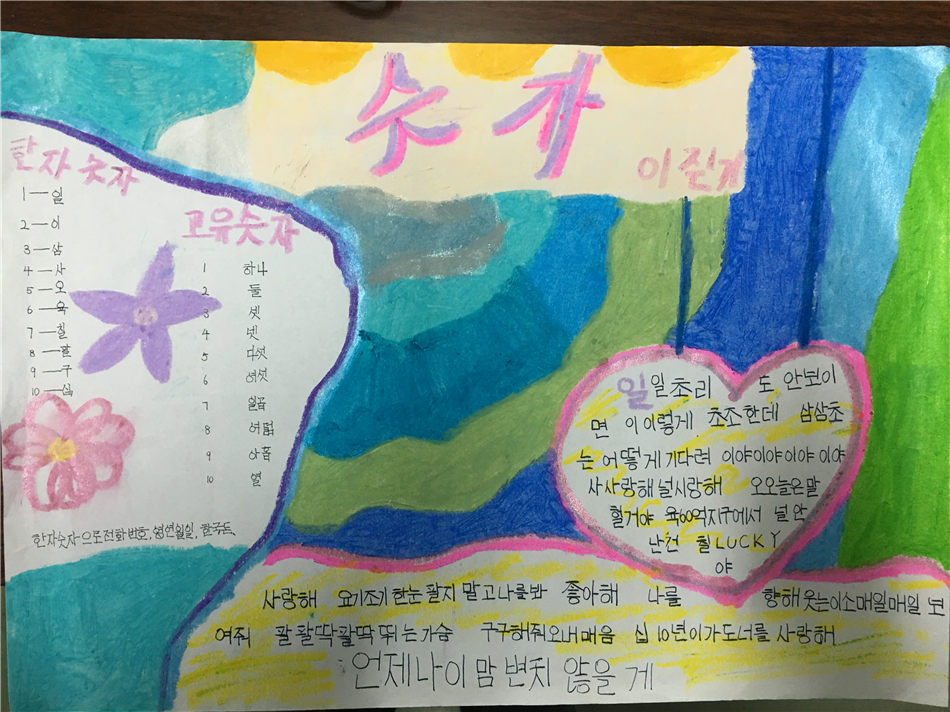 숫자
이진
한자 숫자
1 — 일
2 — 이
3 — 삼
4 — 사
5 — 오
6 — 육
7 — 칠
8 — 팔
9 — 구
10 — 십
고유숫자
1 하나
2 둘
3 셋
4 넷
5 다섯
6 여섯
7 일곱
8 여덟
9 아홉
10 열
한자숫자으로 전화 번호,
일일초리 도 안보이
면 이 이렇게 초조한데 삼삼초
는 어떻게 기다려 이야이야이야이야
사사랑해 널사랑해 오오늘은말
할거야 육60억지구에서 널 만
난건 칠LUCKY
야
사랑해 요기조기한눈팔지 말고나를봐 좋아해 나를 향해 웃는이소매일매일 보
여줘 팔팔딱팔딱 뛰는가슴 구구해줘오내매음 십10년이가도너를 사랑해
언제나이 맘 변치 않을 게